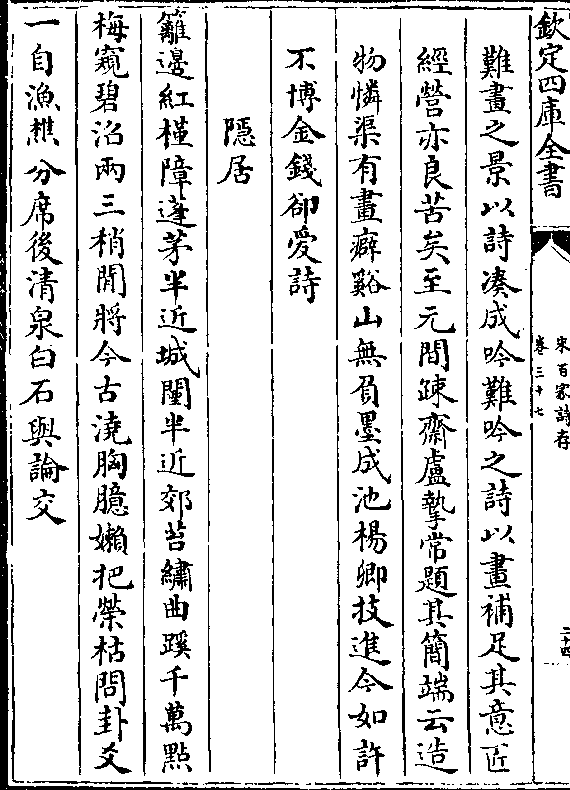 欽定四庫全書
宋百家詩存
卷三十七
二十四
難畫之景以詩凑成吟難吟之詩以畫補足其意匠
經營亦良苦矣至元間踈齋盧摯常題其簡端云造
物憐渠有畫癖谿山無負墨成池楊卿技進今如許
不博金錢卻愛詩
隱居
籬邊紅槿障蓬茅半近城闉半近郊苔繡曲蹊千萬㸃
梅窺碧沼兩三梢閒將今古澆胸臆嬾把榮枯問卦爻
一自漁樵分席後清泉白石與論交